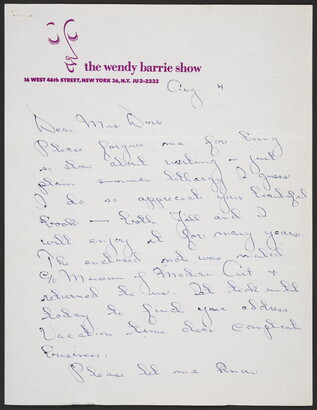 the wendy barrie show
16 WEST 46th STREET, NEW YORK 36, N.Y. JU 2-2233
Aug 4
Dear Mrs. Dorr
Please forgive me for being
so slow about writing — just
plain summer lethargy I guess
I do so appreciate your beautiful
book — both Jill and I
will enjoy it for many years.
The enclosed note was mailed
c/o Museum of Modern Art &
returned to me. It took until
today to find your address
Vacation time does complicate
business.
Please let me know